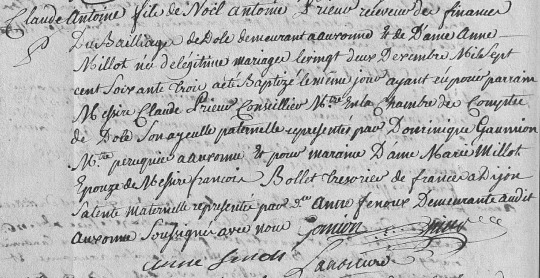 Claude Antoine fils de Noël Antoine Prieur receveur des finance
Du Bailliage de Dole demeurant a auxonne & de Dame Anne
Millot né de légitime mariage le vingt deux Decembre Mil Sept
cent Soixante trois a été Baptizé le même jour ayant eu pour parrain
Messire Claude Prieur Conseillier Mtre en la Chambre des Comptes
de Dole Son ayeulle paternelle representée par Dominique Gaunion
Mtre peruquier a auxonne & pour maraine Dame Marie Millot
Epouze de Messire francois Bollet tresorier de france a Dijon
Satente Maternelle représentée par Anne fenoux Demeurante audit
auxonne Soussignés avec nous Gonion
Anne